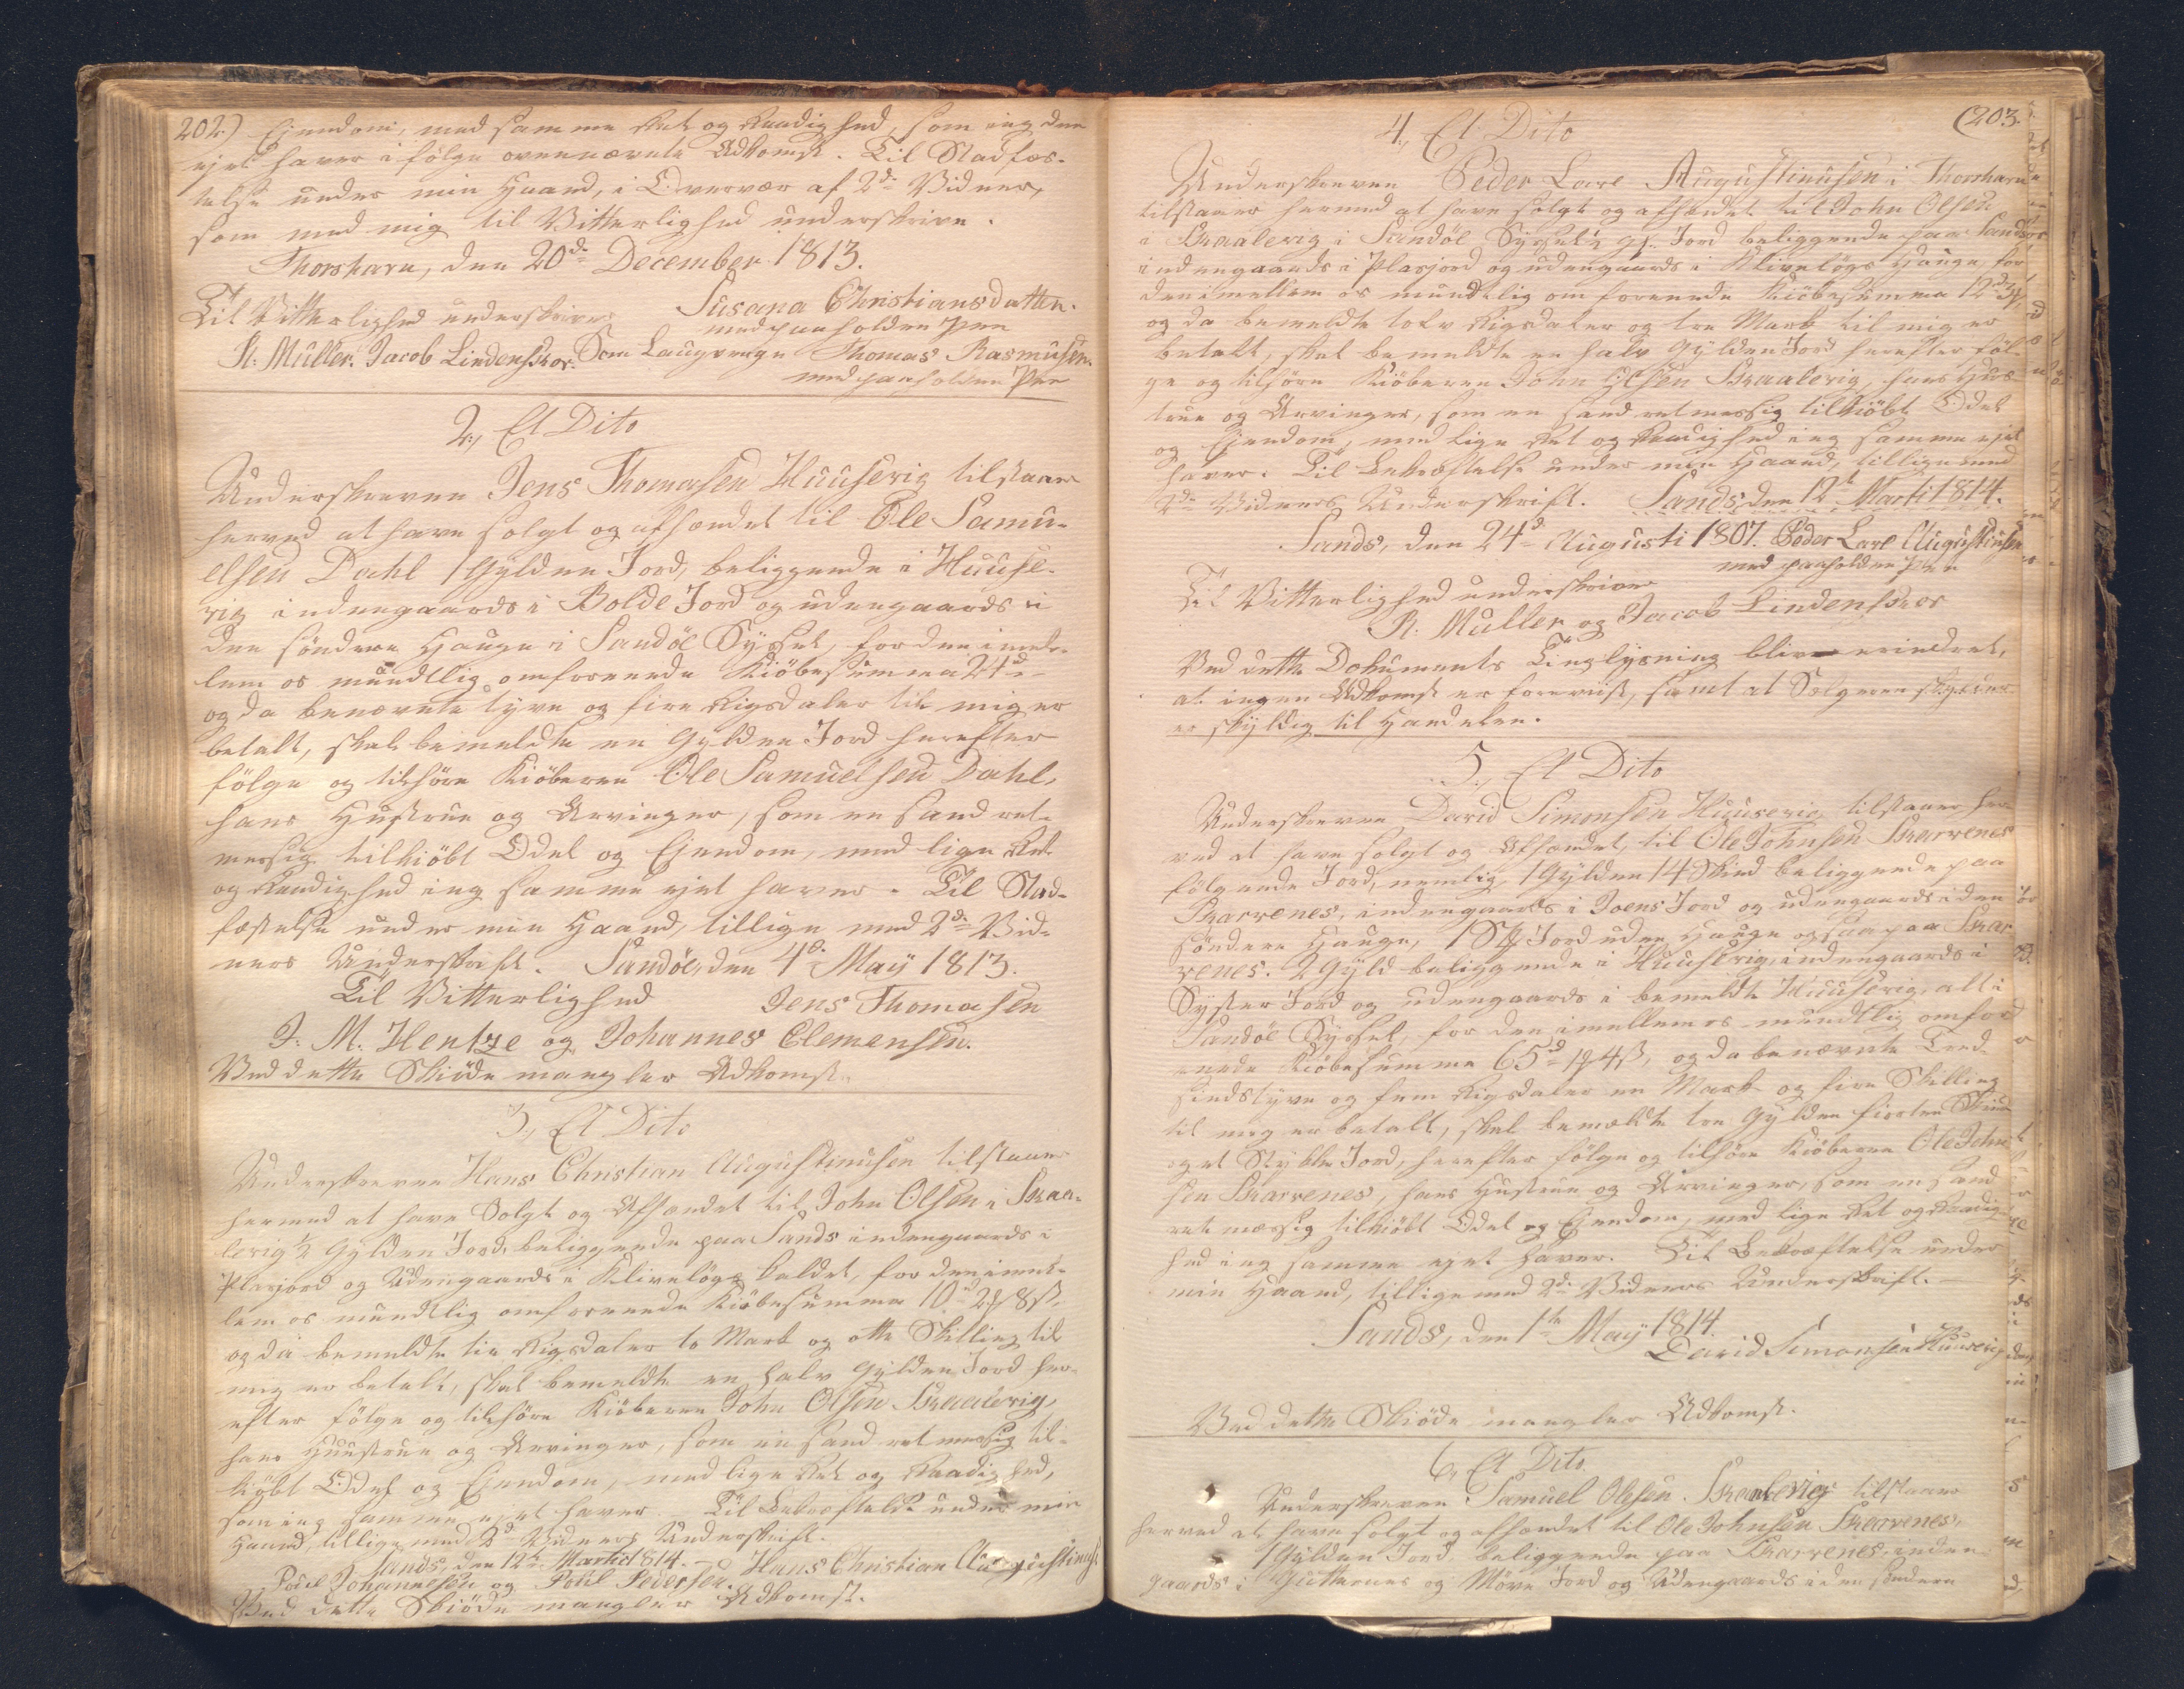 202) Ejendom, med samme Ret og Raadighed, som jeg den
ejet haver i følge ovennævnte Adkomst. Til Stadfæs-
telse under min Haand, i Overvær af 2de Vidner,
som med mig til Vitterlighed underskrive.
Thorshavn, den 20de December 1813.
Susana Christiansdatter.
Til Vitterlighed underskriver
med paaholden Pen
R. Müller. Jacob Lindenskov. Som Laugverge Thomas Rasmusen.
med paaholden Pen
2, Et Dito
Underskreven Jens Thomasen Huusevig tilstaaer
herved at have solgt og afhændet til Ole Samu-
elsen Dahl 1 Gylden Jord, beliggende i Huuse-
vig indengaards i Bolde Jord og udengaards i
den söndere Hauge i Sandöe Syssel, for den imel-
lem os mundtlig omforenede Kiöbesumma 24d
og da benævnte tyve og fire Rigsdaler til mig er
betalt, skal bemeldte en Gylden Jord herefter
följe og tilhöre Kiöberen Ole Samuelsen Dahl,
hans Hustrue og Arvinger, som en sand ret-
messig tilkiöbt Odel og Ejendom, med lige Ret
og Raadighed jeg samme ejet haver. Til Stad-
fæstelse under min Haand, tillige med 2de Vid-
ners Underskrift. Sandöe, den 4de May 1813.
Til Vitterlighed Jens Thomasen
J. M. Hentze og Johannes Clemensen.
Ved dette Skiöde mangler Adkomst.
3, Et Dito
Underskreven Hans Christian Augustinusen tilstaaer
hermed at have Solgt og Afhændet til John Olsen i Skaa-
levig 1/2 Gylden Jord, beliggende paa Sands indengaards i
Plasjord og Udengaards i Klivelöys kaldet, for den imel-
lem os mundtlig omforenede Kiöbesumma 10d 2 8ß,
og da bemeldte tie Rigsdaler to Mark og otte Skilling til
mig er betalt, skal bemeldte en halv Gylden Jord her-
efter fölge og tilhöre Kiöberen John Olsen Skaalevig,
hans Huustrue og Arvinger, som en sand retmessig til-
kiöbt Odel og Ejendom, med lige Ret og Raadighed,
som jeg samme ejet haver. Til Bekræftelse under min
Haand, tillige med 2de Vidners Underskrift.
Sands, den 12te Martii 1814. Hans Christian Augustinus
Poul Johannesen og Poul Pedersen.
Ved dette Skiöde mangler Adkomst.
(203.
4, Et Dito
Underskreven Peder Lare Augustinusen i Thorshavn
tilstaaer hermed at have solgt og afhændet til John Olsen
i Skaalevig i Sandöe Syssel 1/2 gl. Jord beliggende paa Sands
indengaards i Plasjord og udengaards i Klivelöys Hauge, for
den imellem os mundtlig omforenede Kiöbesumma 12d 3
og da bemeldte tolv Rigsdaler og tre Mark til mig er
betalt, skal bemeldte en halv Gylden Jord herefter föl-
ge og tilhöre Kiöberen John Olsen Skaalevig, hans Hus-
true og Arvinger, som en sand retmessig tilkiöbt Odel
og Ejendom, med lige Ret og Raadighed jeg samme ejet
haver. Til Bekræftelse under min Haand, tillige med
2de Vidners Underskrift. Sands, den 12te Marti 1814.
Sands, den 24d Augusti 1807. Peder Lare Augustinusen
med paaholden Pen
Til Vitterlighed underskriver
R. Müller og Jacob Lindenskov
Ved dette Dokuments Tinglysning bliver erindret,
at ingen Adkomst er foreviist, samt at Sælgeren
er skyldig til Handelen.
5, Et Dito
Underskreven David Simonsen Huusevig tilstaaer her-
ved at have solgt og Afhændet, til Ole Johnsen Skarvenes
fölgende Jord, nemlig 1 Gylden 14 Skind beliggende paa
Skarvenes, indengaards i Joens Jord og udengaards i den
söndere Hauge, 1 St. Jord uden Hauge ogsaa paa Skar-
venes. 2 Gyld beliggende i Huusevig, indengaards i
Syster Jord og udengaards i bemeldte Huusevig, alt i
Sandöe Syssel, for den imellem os mundtlig omfor-
enede Kiöbesumma 65d 1 4ß, og da benævnte Tred-
sindstyve og fem Rigsdaler en Mark og fire Skilling
til mig er betalt, skal bemeldte tre Gylden fiorten Skind
og et Stykke Jord, herefter fölge og tilhöre Kiöberen Ole John-
sen Skarvenes, hans Hustrue og Arvinger, som en sand
retmæssig tilkiöbt Odel og Ejendom, med lige Ret og Raadig-
hed jeg samme ejet haver. Til Bekræftelse under
min Haand, tillige med 2de Vidners Underskrift.
Sands, den 1te May 1814.
David Simonsen Huusevig
Ved dette Skiöde mangler Adkomst.
6, Et Dito
Underskreven Samuel Olesen Skaalevig tilstaaer
herved at have solgt og afhændet til Ole Johnsen Skarvenes,
1 Gylden Jord, beliggende paa Skarvenes, inden
gaards i Gutternes og Möve Jord og Udengaards i den söndere